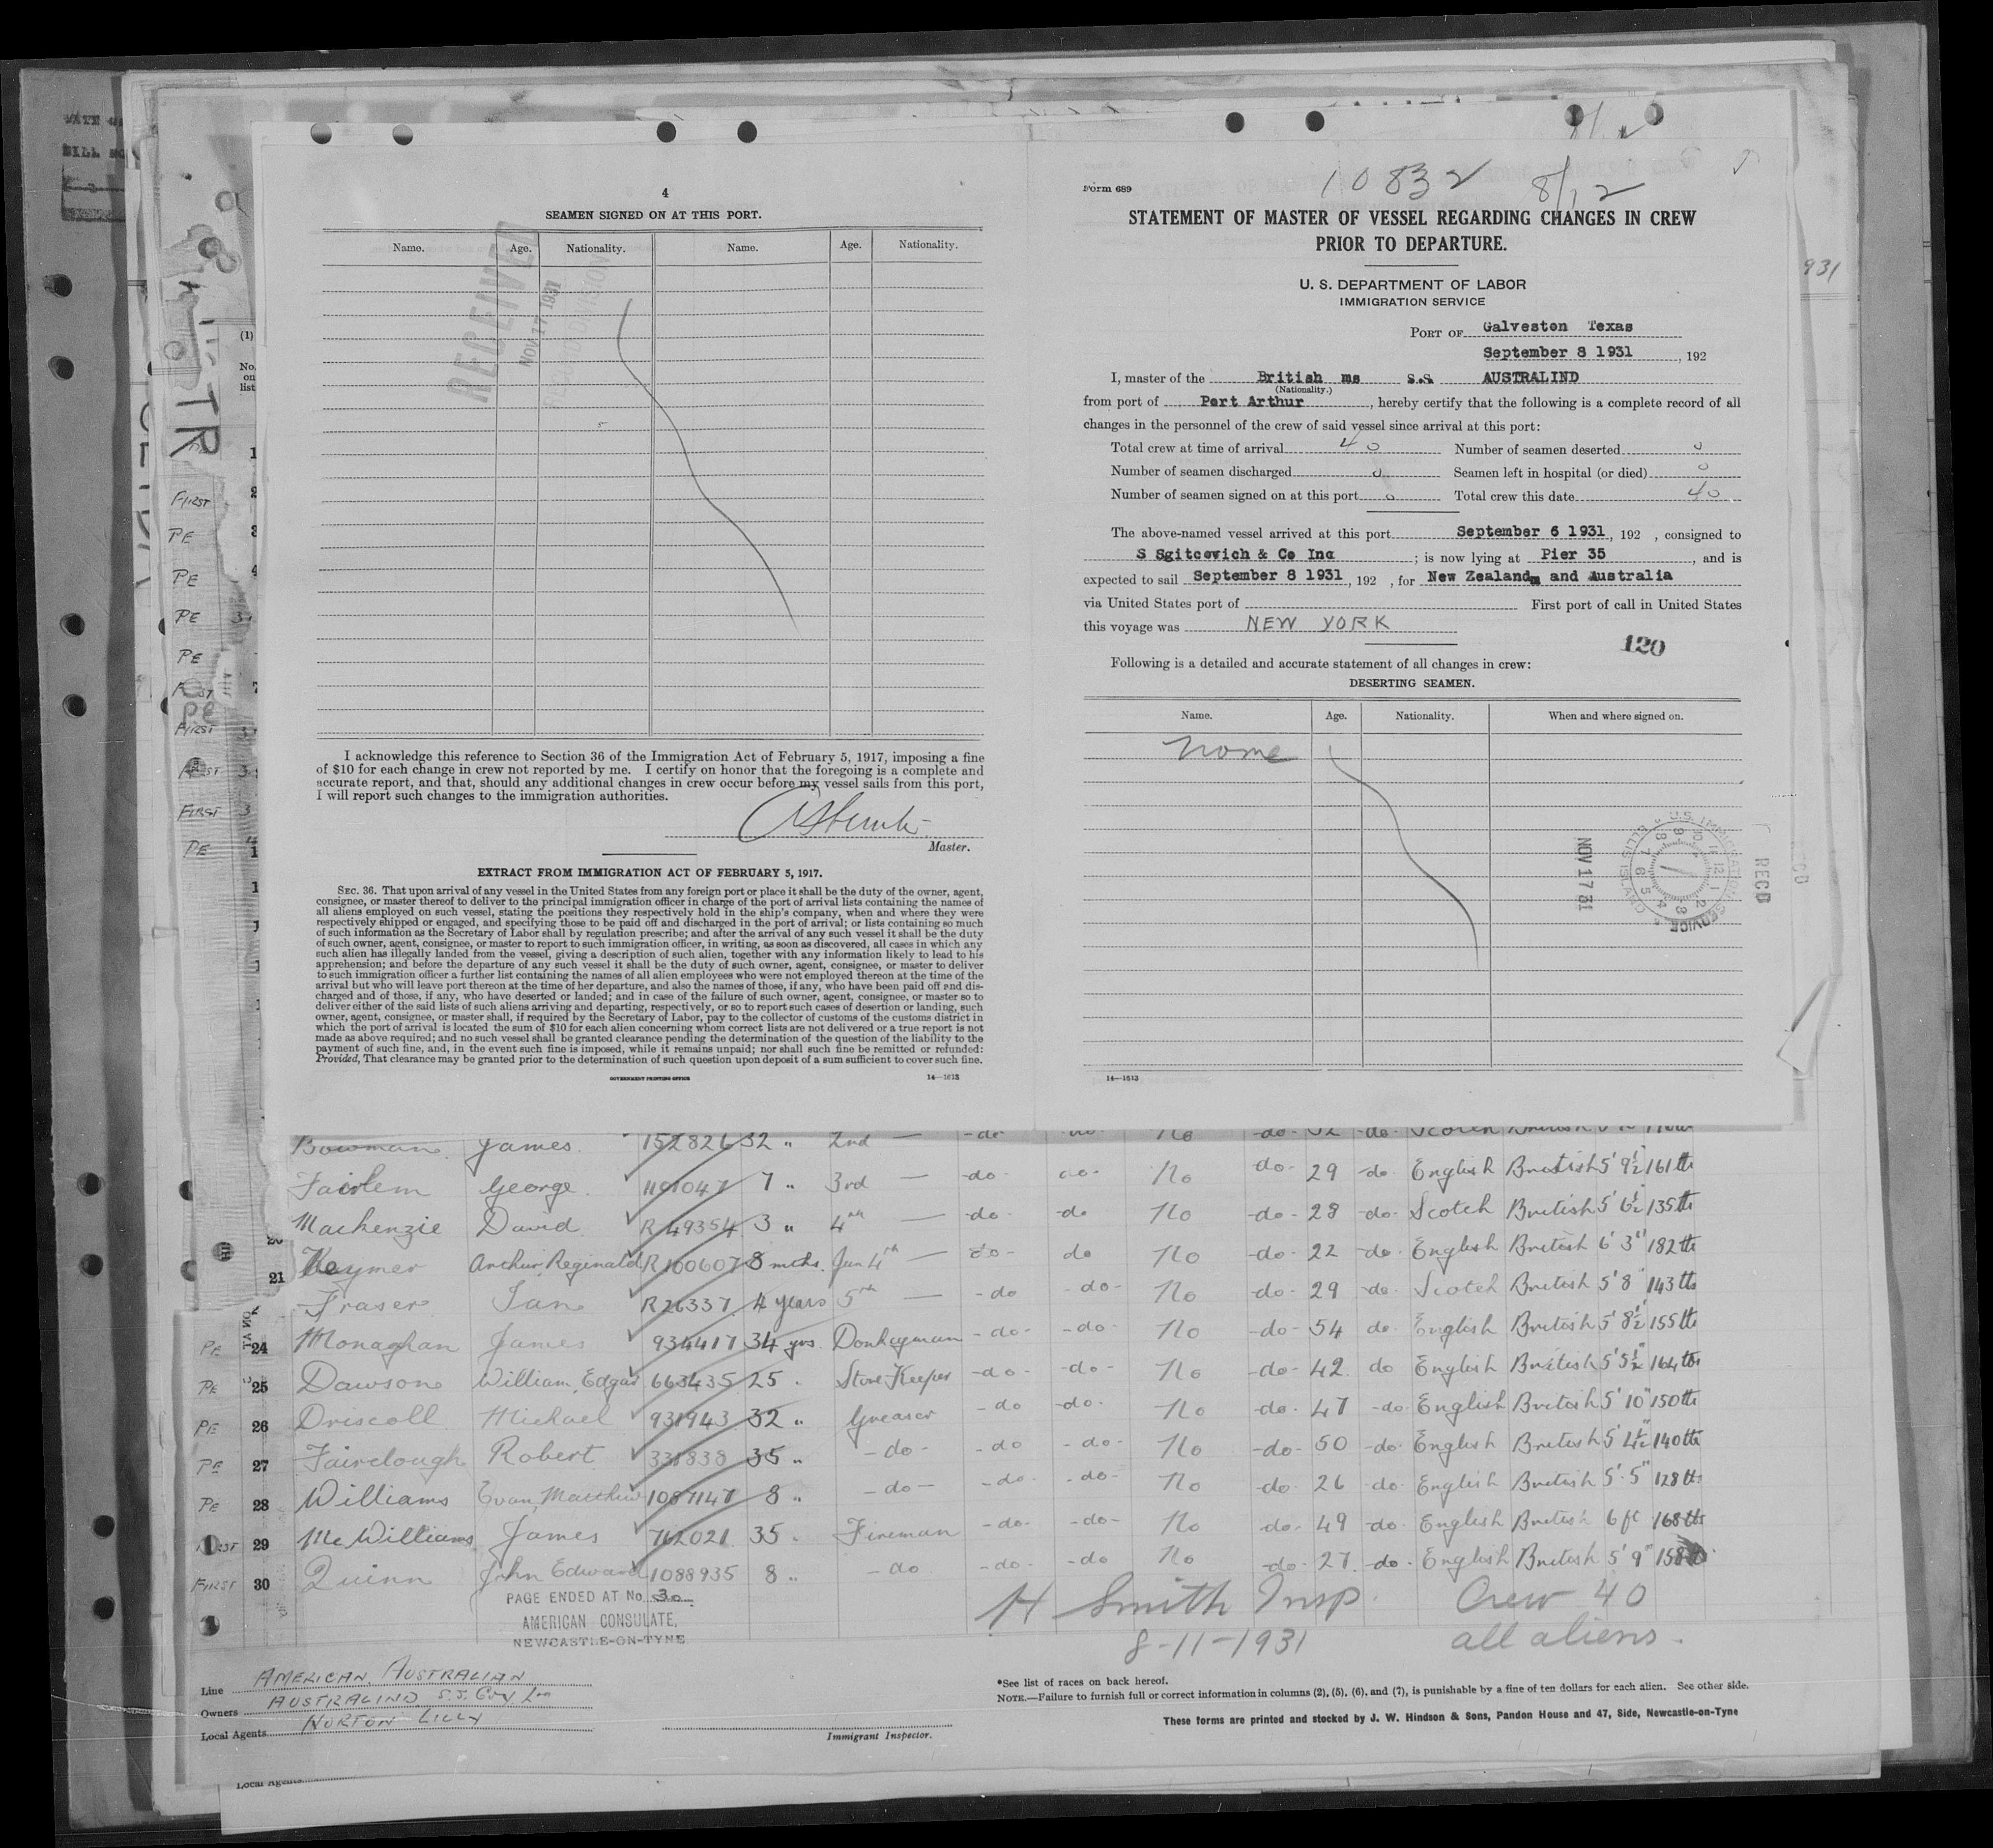 4
SEAMEN SIGNED ON AT THIS PORT.
Name. Age. Nationality. Name. Age. Nationality.
RECEIVED
NOV 17 1931
I acknowledge this reference to Section 36 of the Immigration Act of February 5, 1917, imposing a fine
of $10 for each change in crew not reported by me. I certify on honor that the foregoing is a complete and
accurate report, and that, should any additional changes in crew occur before my vessel sails from this port,
I will report such changes to the immigration authorities.
Master.
EXTRACT FROM IMMIGRATION ACT OF FEBRUARY 5, 1917.
SEC. 36. That upon arrival of any vessel in the United States from any foreign port or place it shall be the duty of the owner, agent,
consignee, or master thereof to deliver to the principal immigration officer in charge of the port of arrival lists containing the names of
all aliens employed on such vessel, stating the positions they respectively hold in the ship's company, when and where they were
respectively shipped or engaged, and specifying those to be paid off and discharged in the port of arrival; or lists containing so much
of such information as the Secretary of Labor shall by regulation prescribe; and after the arrival of any such vessel it shall be the duty
of such owner, agent, consignee, or master to report to such immigration officer, in writing, as soon as discovered, all cases in which any
such alien has illegally landed from the vessel, giving a description of such alien, together with any information likely to lead to his
apprehension; and before the departure of any such vessel it shall be the duty of such owner, agent, consignee, or master to deliver
to such immigration officer a further list containing the names of all alien employees who were not employed thereon at the time of the
arrival but who will leave port thereon at the time of her departure, and also the names of those, if any, who have been paid off and dis-
charged and of those, if any, who have deserted or landed; and in case of the failure of such owner, agent, consignee, or master so to
deliver either of the said lists of such aliens arriving and departing, respectively, or so to report such cases of desertion or landing, such
owner, agent, consignee, or master shall, if required by the Secretary of Labor, pay to the collector of customs of the customs district in
which the port of arrival is located the sum of $10 for each alien concerning whom correct lists are not delivered or a true report is not
made as above required; and no such vessel shall be granted clearance pending the determination of the question of the liability to the
payment of such fine, and, in the event such fine is imposed, while it remains unpaid; nor shall such fine be remitted or refunded:
Provided, That clearance may be granted prior to the determination of such question upon deposit of a sum sufficient to cover such fine.
GOVERNMENT PRINTING OFFICE 14—1613
Form 689
10832 8/12
STATEMENT OF MASTER OF VESSEL REGARDING CHANGES IN CREW
PRIOR TO DEPARTURE.
U. S. DEPARTMENT OF LABOR
IMMIGRATION SERVICE
PORT OF Galveston Texas
September 8 1931, 192
I, master of the British ms S.S. AUSTRALIND
(Nationality.)
from port of Port Arthur, hereby certify that the following is a complete record of all
changes in the personnel of the crew of said vessel since arrival at this port:
Total crew at time of arrival 40 Number of seamen deserted 0
Number of seamen discharged 0 Seamen left in hospital (or died) 0
Number of seamen signed on at this port 0 Total crew this date 40
The above-named vessel arrived at this port September 6 1931, 192 , consigned to
S Sgitcovich & Co Inc ; is now lying at Pier 35, and is
expected to sail September 8 1931, 192 , for New Zealand and Australia
via United States port of First port of call in United States
this voyage was NEW YORK
120
Following is a detailed and accurate statement of all changes in crew:
DESERTING SEAMEN.
Name. Age. Nationality. When and where signed on.
None
U.S. IMMIGRATION SERVICE ELLIS ISLAND
NOV 17 31
RECD
14—1613
931
(1)
No. on list
Bowman James 152826 32 " 2nd — -do- -do- No -do- 32 -do- Scotch British
Fairlem George 1191047 7 " 3rd — -do- -do- No -do- 29 -do- English British 5' 9½ 161 lb
Mackenzie David R 49354 3 " 4th — -do- -do No -do- 28 -do- Scotch British 5' 6½ 135 lb
21 Keymer Arthur Reginald R 100607 8 mths. Jun 4th — do- do No -do- 22 -do- English British 6' 3" 182 lb
Fraser Ian R 26337 4 years 5th — -do -do- No -do- 29 -do- Scotch British 5' 8" 143 lb
PE 24 Monaghan James 934417 34 yrs Donkeyman -do- -do- No -do- 54 do- English British 5' 8½ 155 lb
PE 25 Dawson William, Edgar 663435 25 " Store Keeper -do- -do- No -do- 42 do English British 5' 5½" 164 lb
PE 26 Driscoll Michael 931943 32 " Greaser -do -do- No -do- 47 -do- English British 5' 10" 150 lb
PE 27 Fairclough Robert 331838 35 " -do- -do -do- No -do- 50 -do- English British 5' 4½ 140 lb
PE 28 Williams Evan, Matthew 1087147 8 " -do- -do- -do- No -do- 26 -do- English British 5' 5" 128 lb
FIRST 29 McWilliams James 762021 35 " Fireman -do- -do- No -do- 49 -do- English British 6 ft 168 lb
FIRST 30 Quinn John Edward 1088935 8 " -do -do- -do No -do- 27 -do- English British 5' 9" 158
PAGE ENDED AT No 30
AMERICAN CONSULATE,
NEWCASTLE-ON-TYNE
H Smith Insp. Crew 40
8-11-1931 all aliens.
Line AMERICAN AUSTRALIAN
Owners AUSTRALIND S.S. Coy Ltd
Local Agents NORTON LILLY
Immigrant Inspector.
*See list of races on back hereof.
NOTE.—Failure to furnish full or correct information in columns (2), (5), (6), and (7), is punishable by a fine of ten dollars for each alien. See other side.
These forms are printed and stocked by J. W. Hindson & Sons, Pandon House and 47, Side, Newcastle-on-Tyne
Local Agents